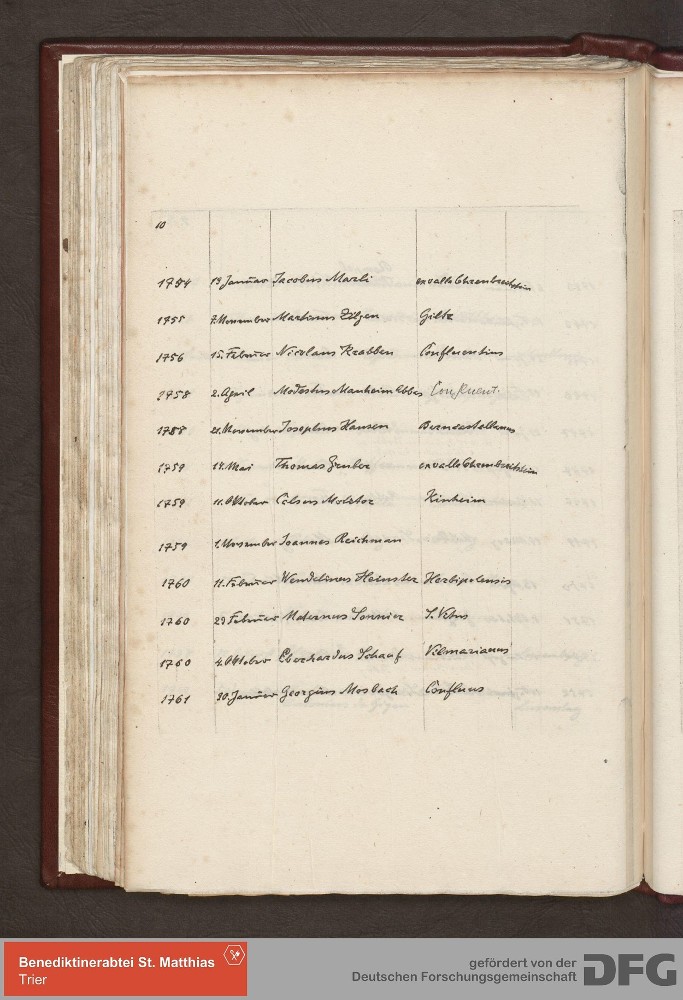 10
1754 19 Januar Jacobus Marli ex valle Ehrenbreitstein
1755 7. November Martinus Zilgen Giltz
1756 15. Februar Nicolaus Krabben Confluentius
1758 2. April Modestus Manheim Abbas Confluent.
1758 21. November Josephus Hansen Berncastellanus
1759 14. Mai Thomas Gruber ex valle Ehrenbreitstein
1759 11. Oktober Celsus Moletor Kinheim
1759 1. November Joannes Reichman
1760 11. Februar Wendelinus Heinster Herbipolensis
1760 29 Februar Maternus Sonnier S. Vitus
1760 4. Oktober Eberhardus Schaaf Vilmarianus
1761 30. Januar Georgius Mosbach Confluens
Benediktinerabtei St. Matthias
Trier
gefördert von der
Deutschen Forschungsgemeinschaft DFG